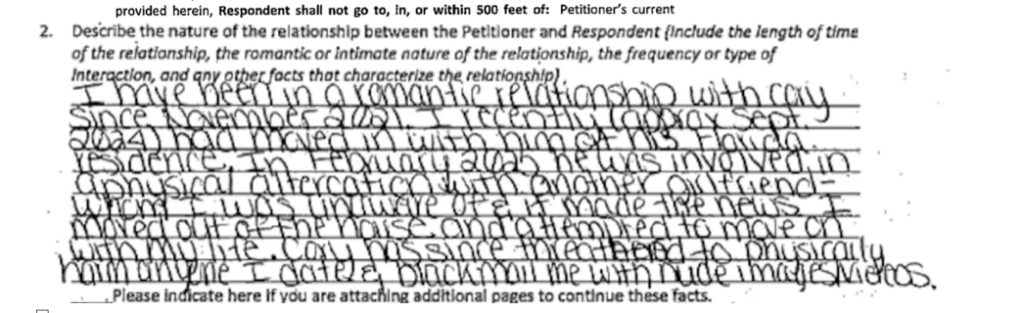 provided herein, Respondent shall not go to, in, or within 500 feet of: Petitioner's current
2. Describe the nature of the relationship between the Petitioner and Respondent (Include the length of time
of the relationship, the romantic or intimate nature of the relationship, the frequency or type of
Interaction, and any other facts that characterize the relationship).
I have been in a romantic relationship with cory
since November 2021. I recently (approx Sept.
2024) had moved in with him at his Florida
residence. In February 2025 he was involved in
a physical altercation with another girlfriend -
whom I was unaware of & it made the news. I
moved out of the house and attempted to move on
with my life. Cory has since threatened to physically
harm anyone I date & blackmail me with nude images/videos.
Please indicate here if you are attaching additional pages to continue these facts.